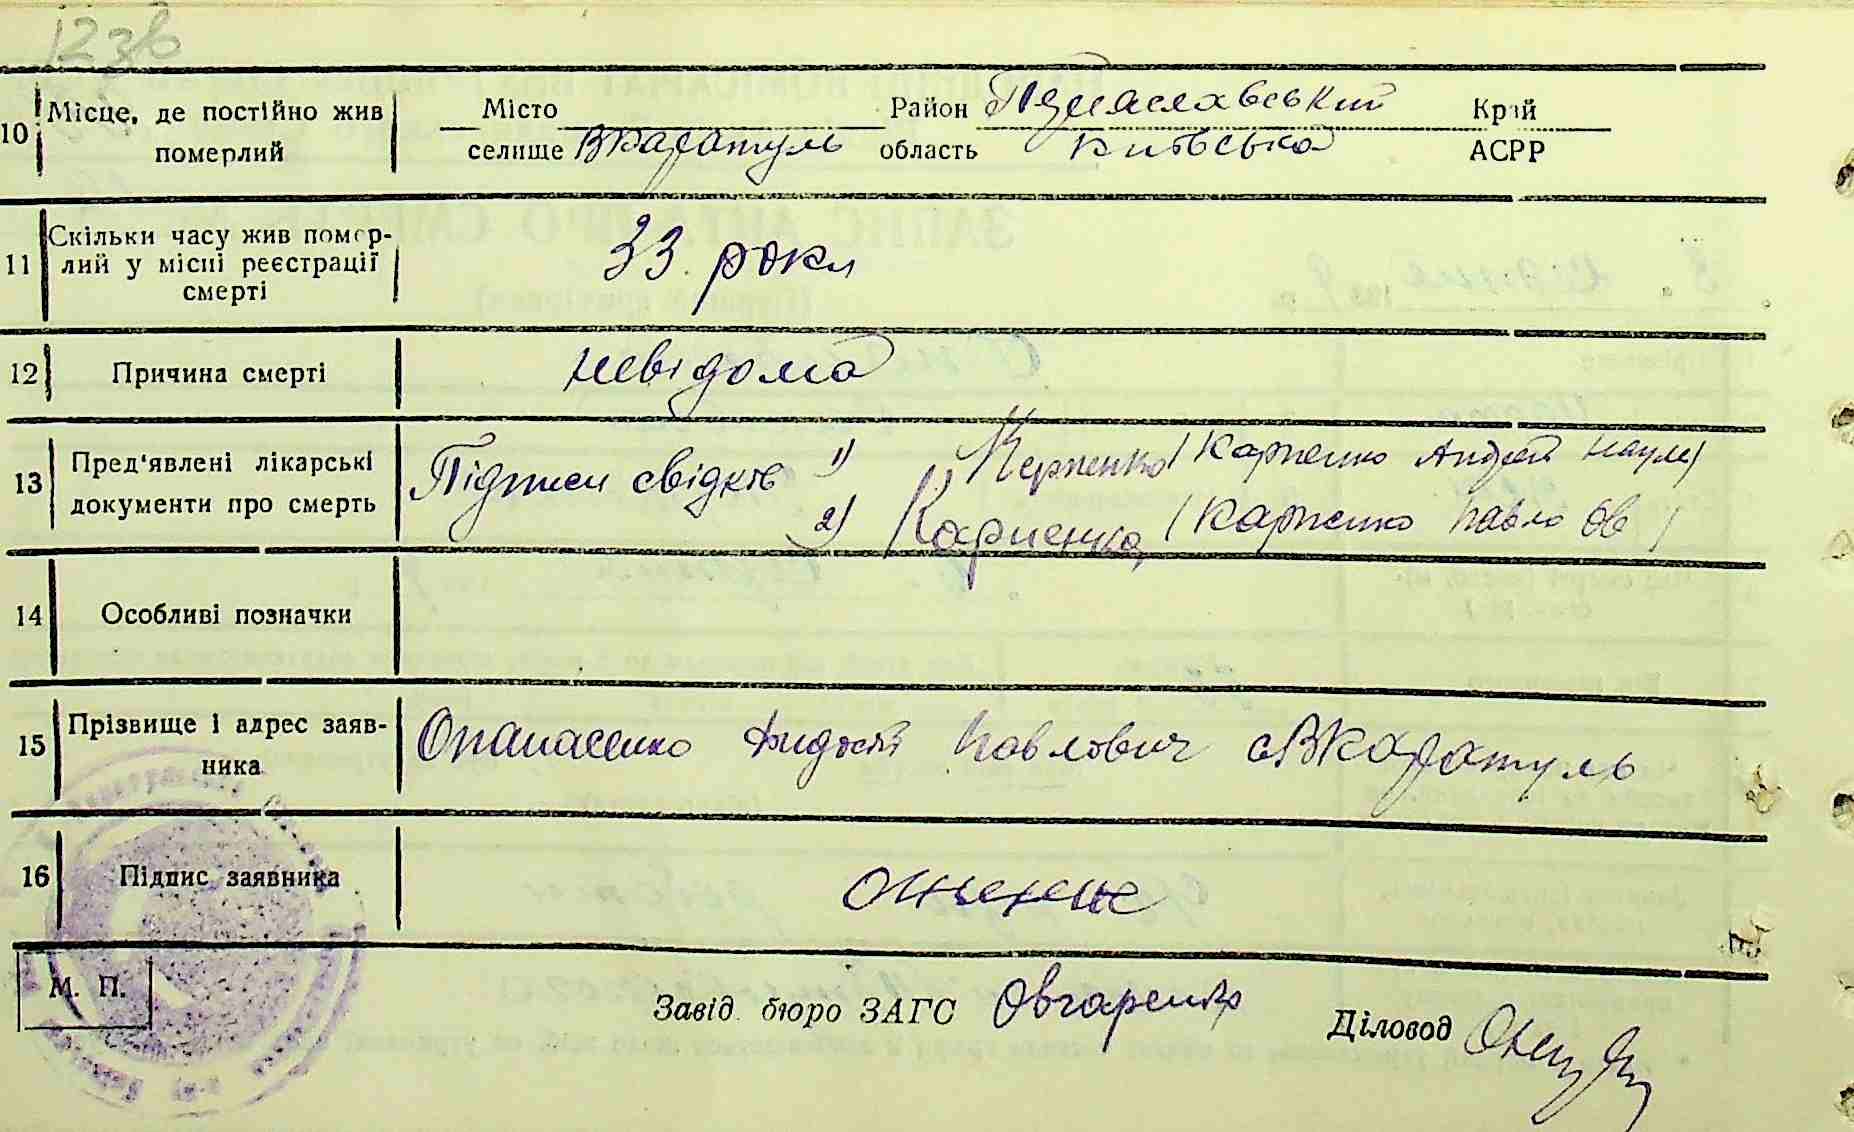 10 Місце, де постійно жив померлий
Місто Район Переяславський Край
селище ВКаратуль область Київська АСРР
11 Скільки часу жив помер-
лий у місці реєстрації
смерті
33 роки
12 Причина смерті невідома
13 Пред'явлені лікарські
документи про смерть
Підписи свідків 1) Карпенко (Карпенко Андрій Наум)
2) Карпенко (Карпенко Павло Ов)
14 Особливі позначки
15 Прізвище і адрес заяв-
ника
Опанасенко Андрій Павлович сВКаратуль
16 Підпис заявника
М. П.
Завід. бюро ЗАГС Овчаренко
Діловод